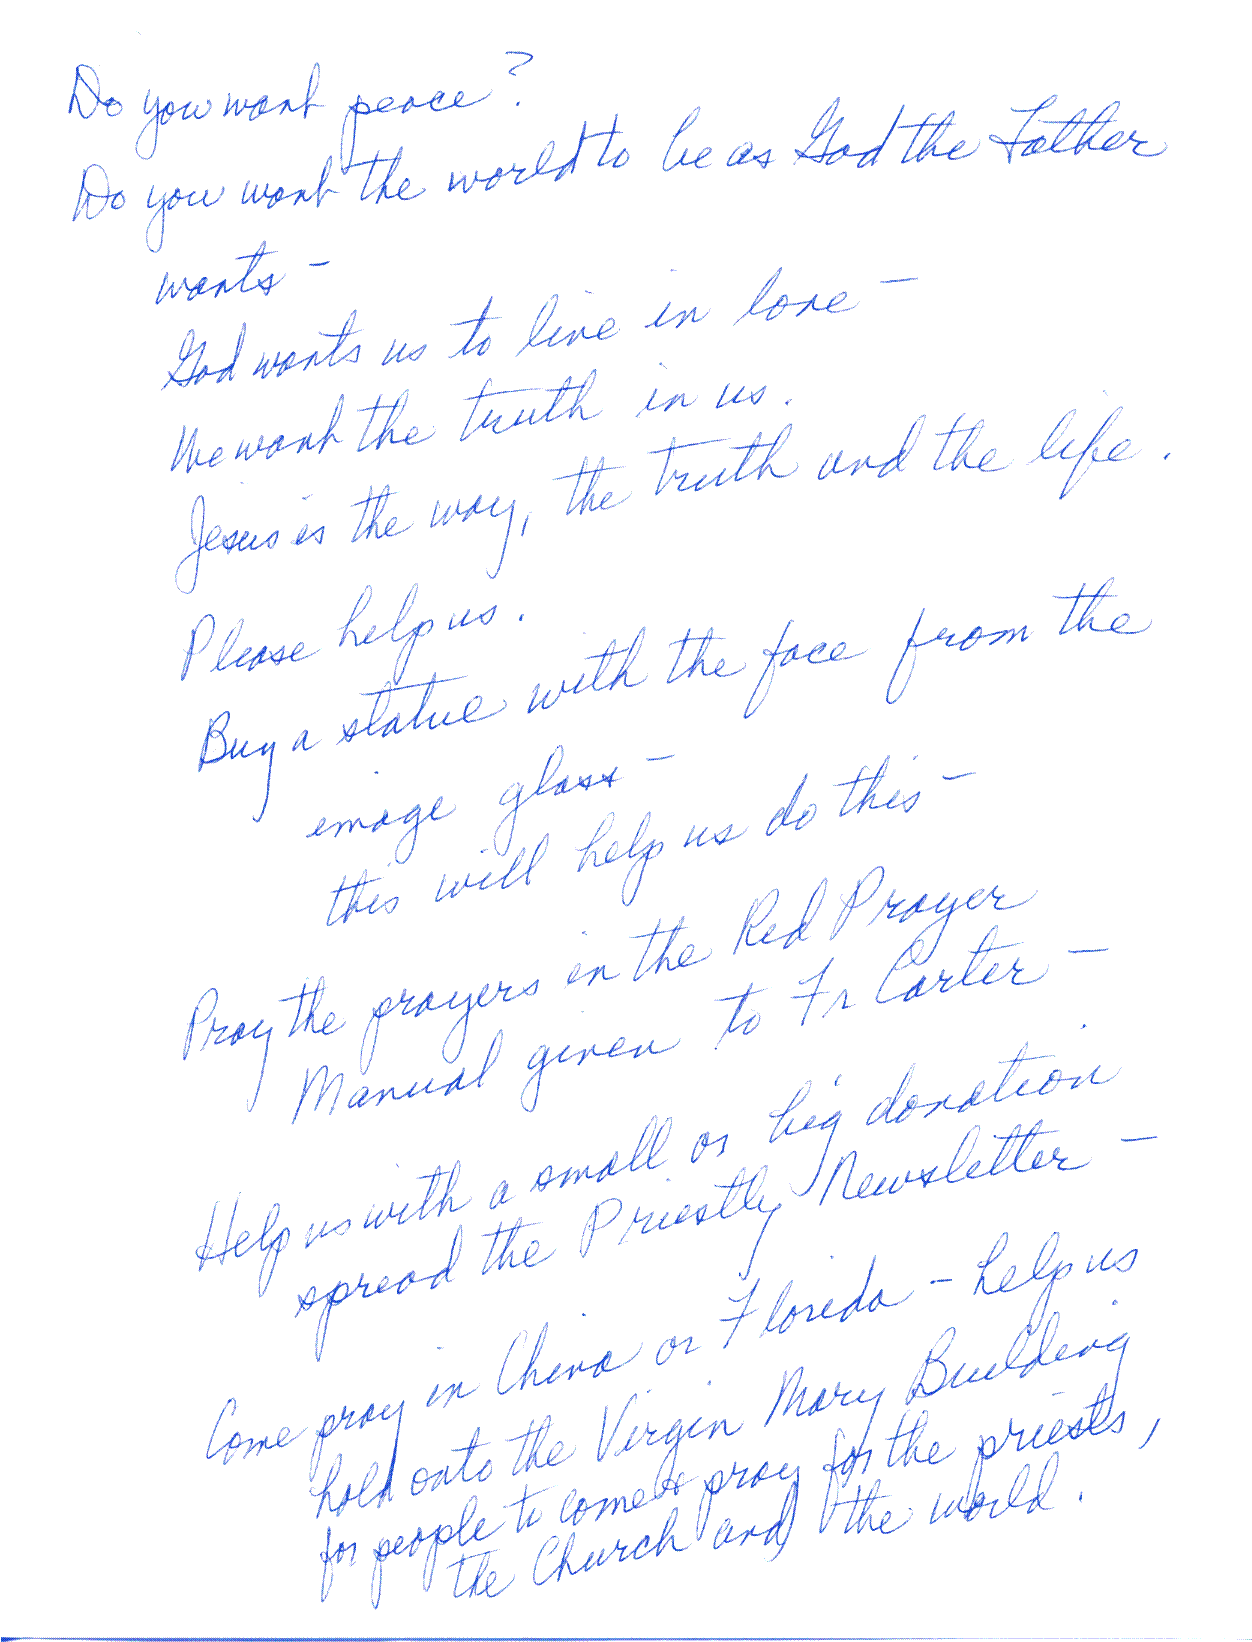 Do you want peace?
Do you want the world to be as God the Father
wants –
God wants us to live in love –
We want the truth in us.
Jesus is the way, the truth and the life.
Please help us.
Buy a statue with the face from the
image glass –
this will help us do this –
Pray the prayers in the Red Prayer
Manual given to Fr Carter –
Help us with a small or big donation
spread the Priestly Newsletter –
Come pray in China or Florida – help us
hold onto the Virgin Mary Building
for people to come & pray for the priests,
the Church and the world.